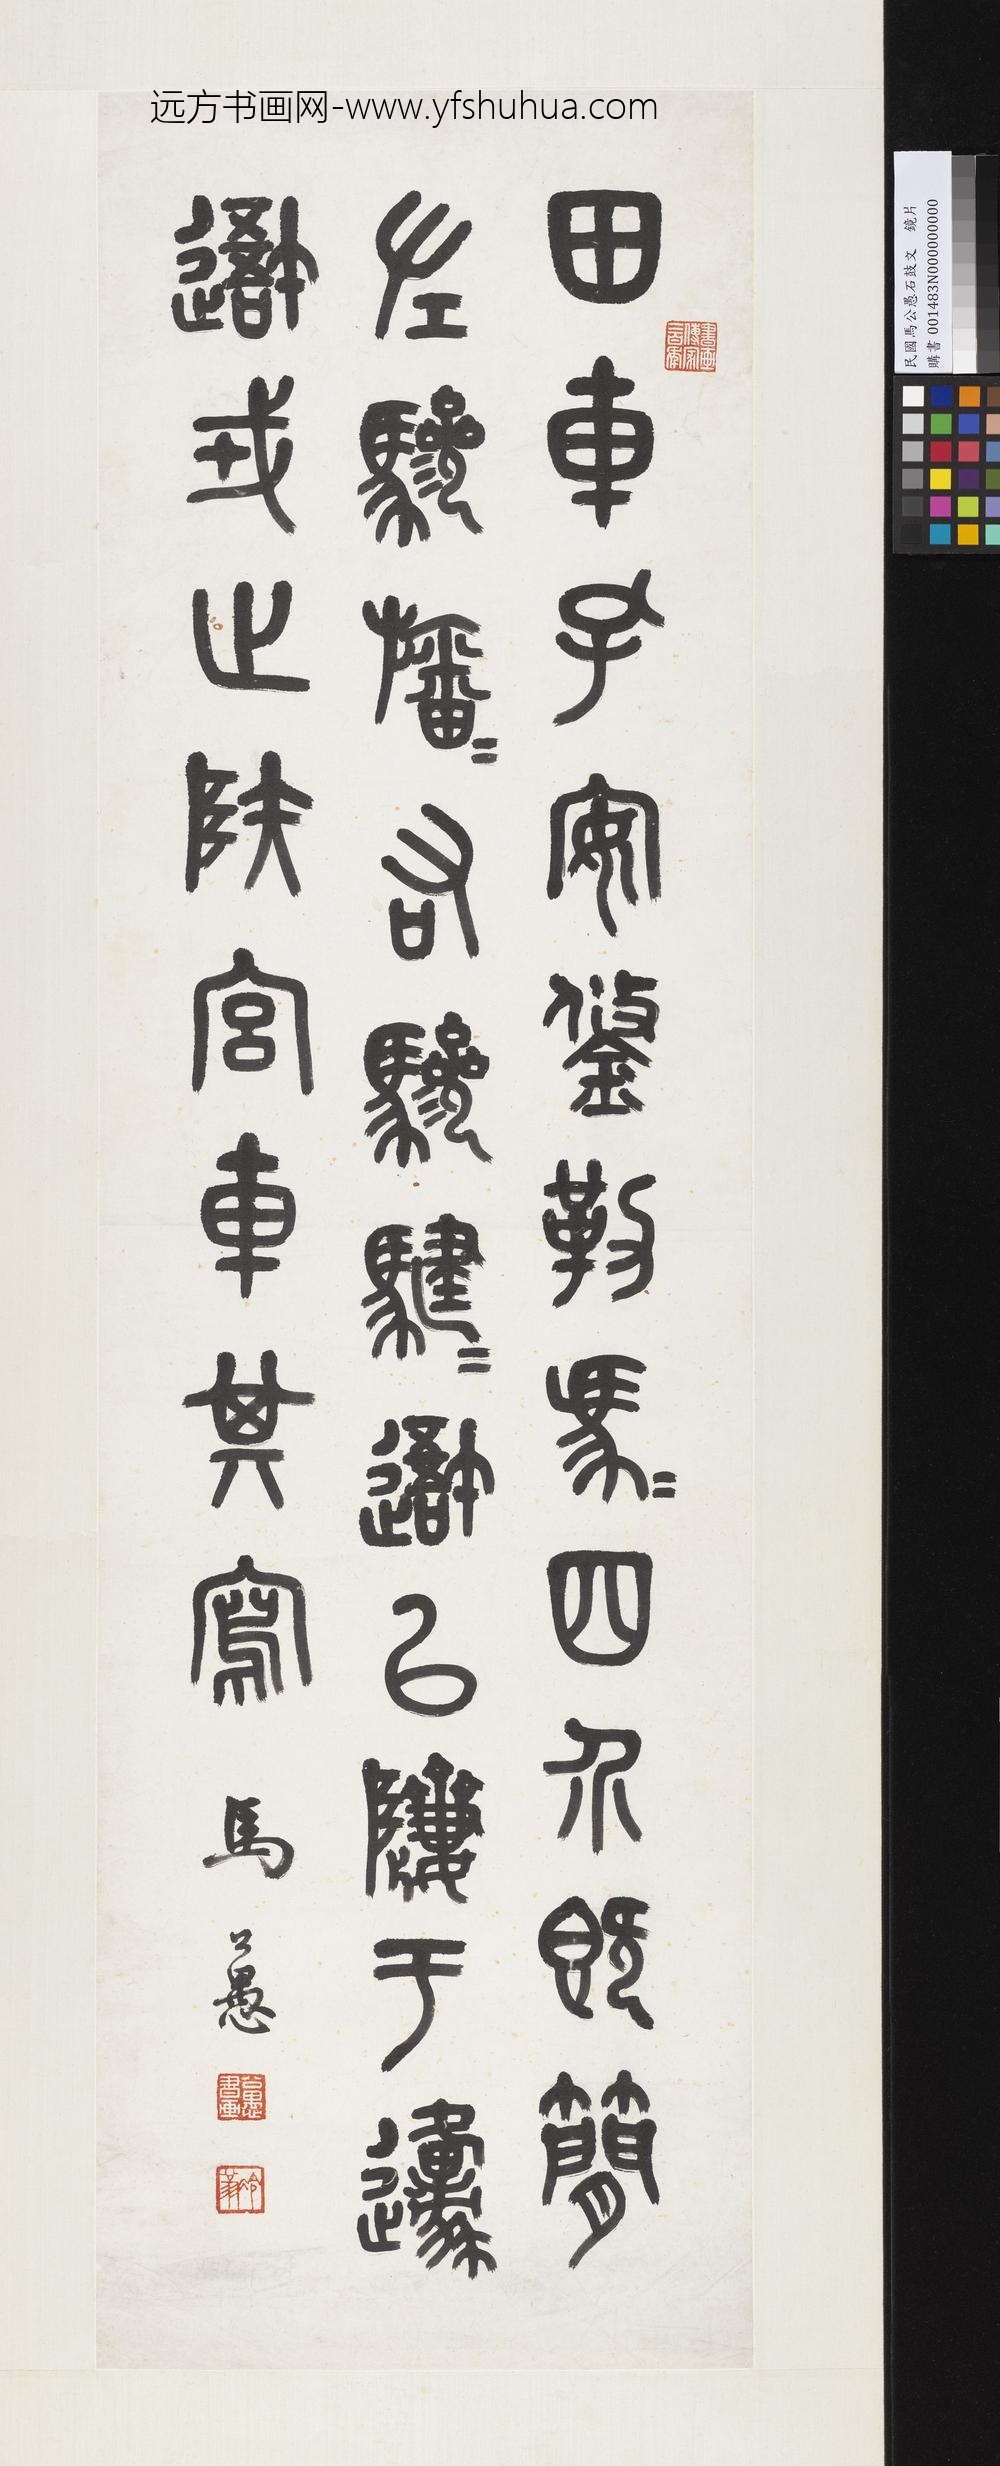 远方书画网-www.yfshuhua.com
田車孔安鋚勒馬=四介既簡
左驂旛=右驂騝=䢱㠯隮于邍
䢱戎止陕宫車其寫
馬公愚
公愚書画
書畫傳家
民國馬公愚石鼓文 鏡片
購書 001483N000000000